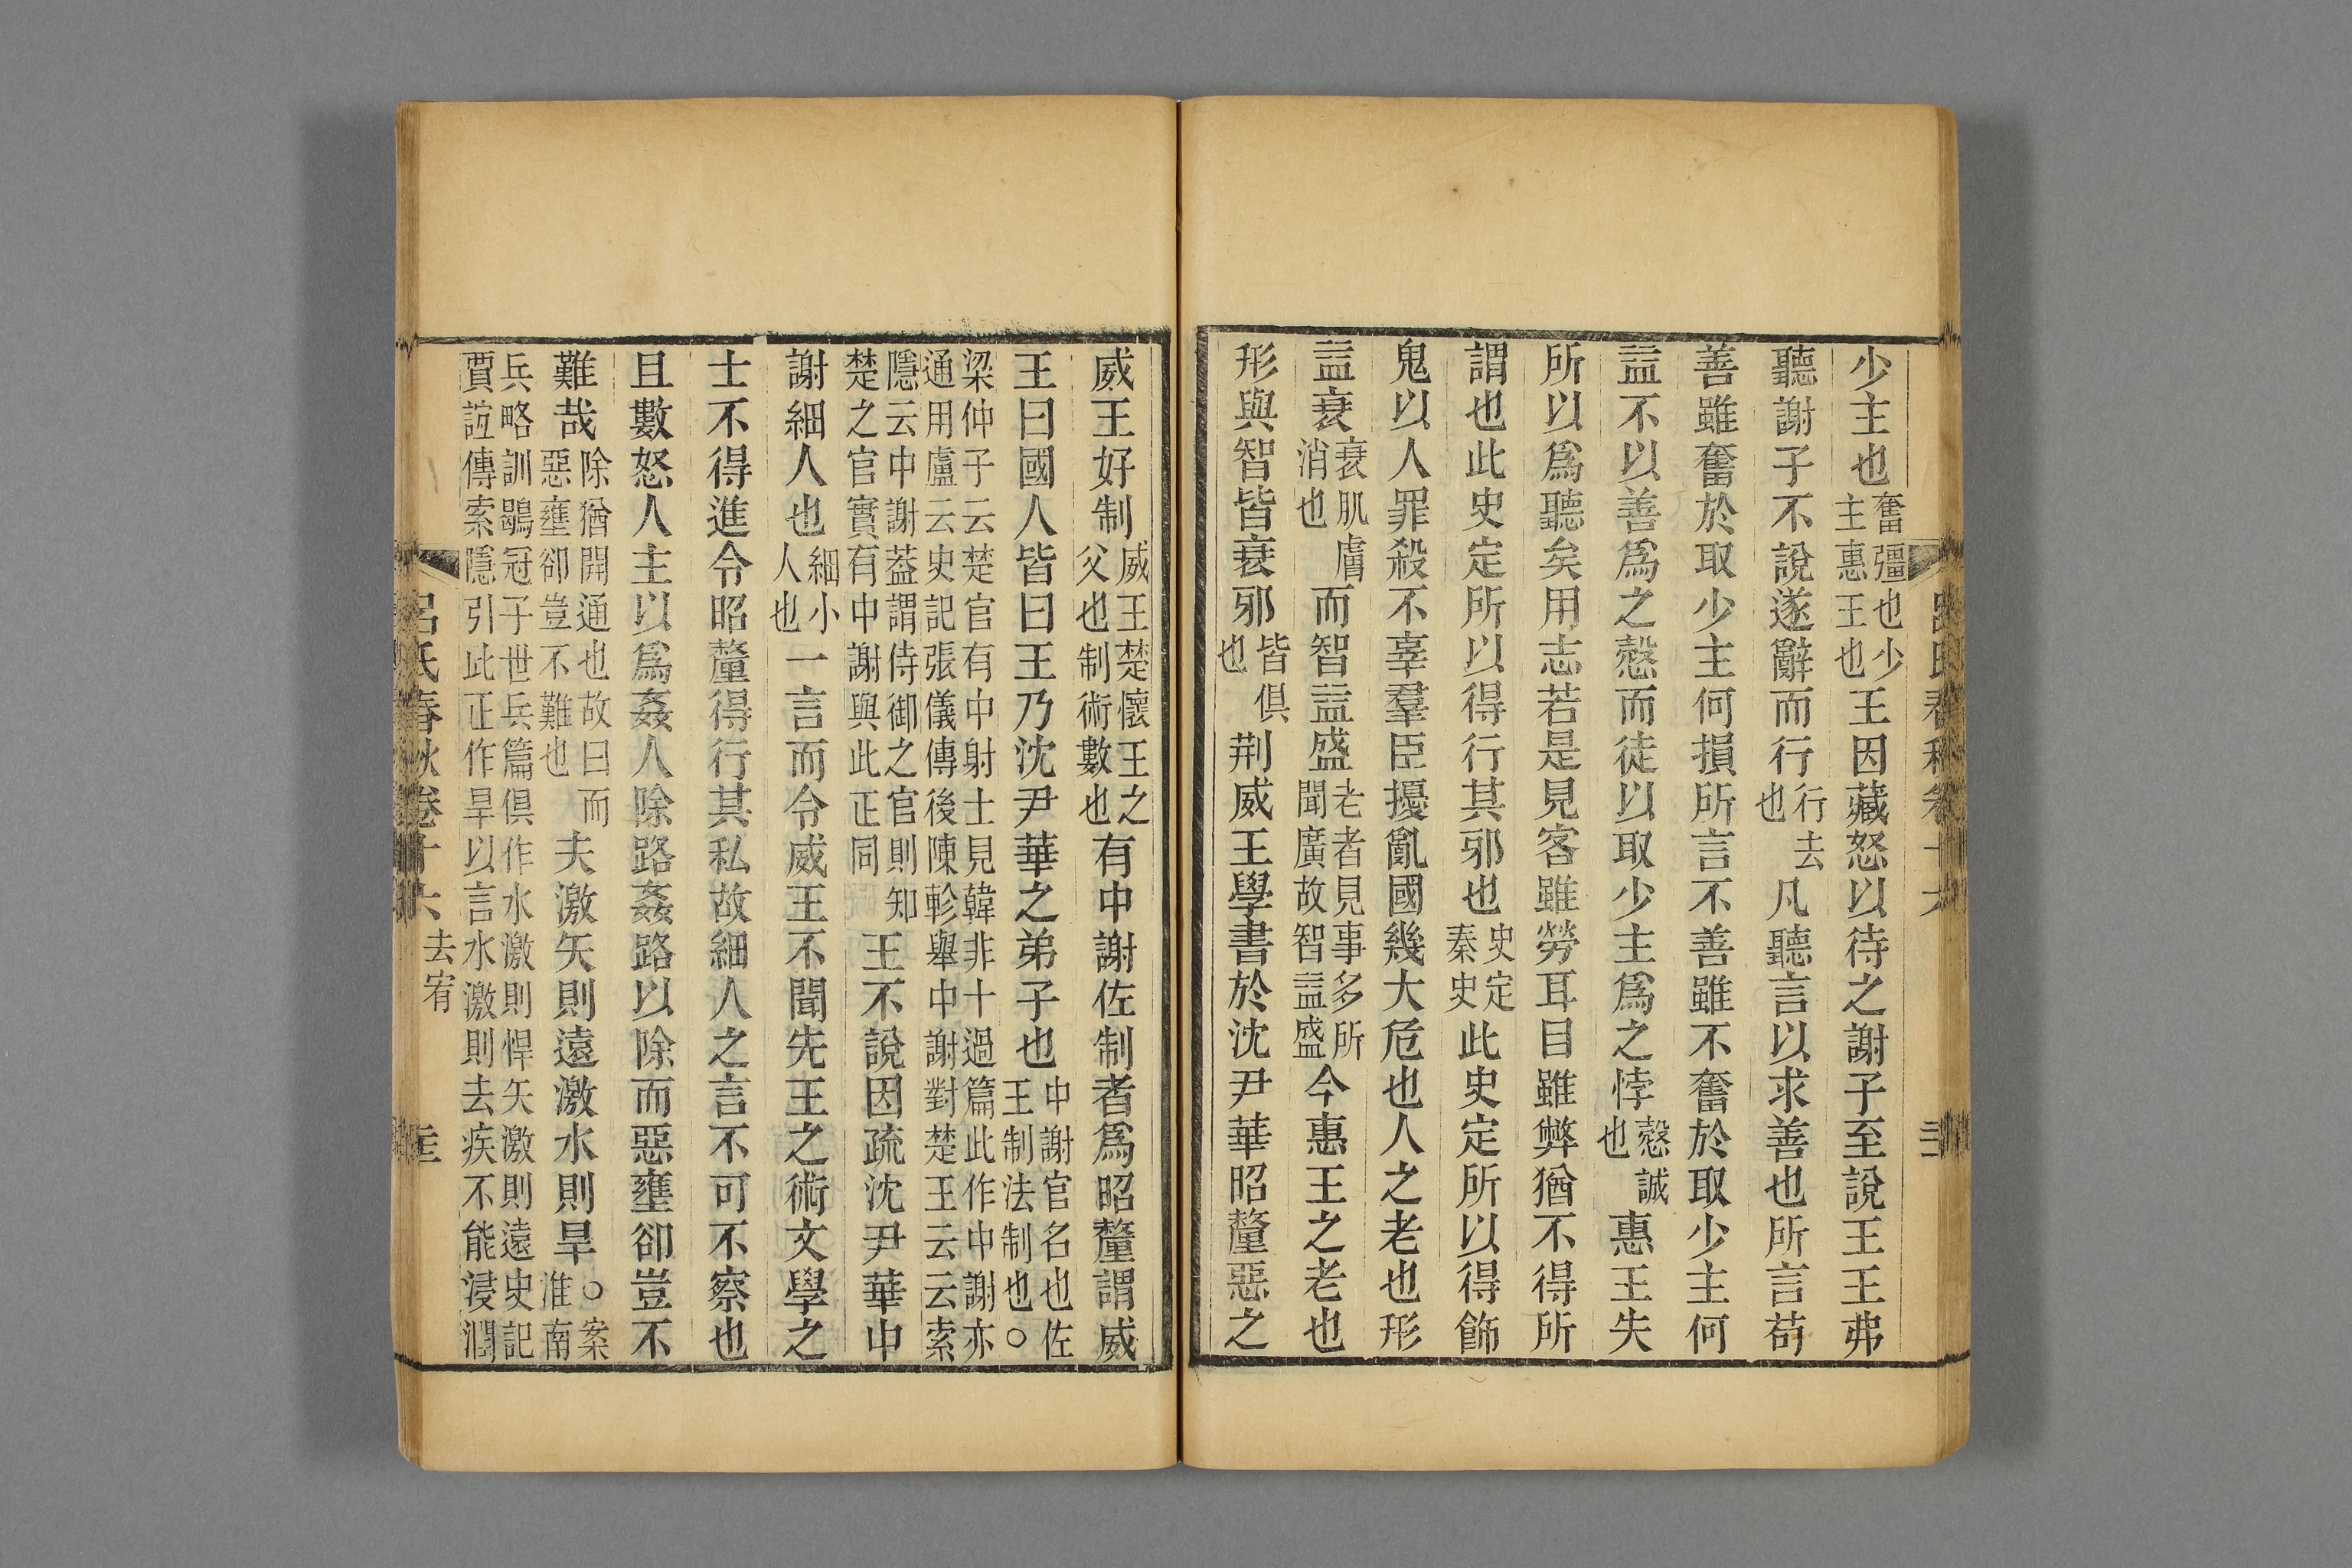 少主也奮彊也少主惠王也王因藏怒以待之謝子至說王王弗
聽謝子不說遂辭而行行去也凡聽言以求善也所言苟
善雖奮於取少主何損所言不善雖不奮於取少主何
益不以善爲之愨而徒以取少主爲之悖愨誠也惠王失
所以爲聽矣用志若是見客雖勞耳目雖弊猶不得所
謂也此史定所以得行其邪也史定秦史此史定所以得飾
鬼以人罪殺不辜羣臣擾亂國幾大危也人之老也形
益衰衰肌膚消也而智益盛老者見事多所聞廣故智益盛今惠王之老也
形與智皆衰邪皆俱也荆威王學書於沈尹華昭釐惡之
威王好制威王楚懷王之父也制術數也有中謝佐制者爲昭釐謂威
王曰國人皆曰王乃沈尹華之弟子也中謝官名也佐王制法制也○
梁仲子云楚官有中射士見韓非十過篇此作中謝亦通用盧云史記張儀傳後陳軫舉中謝對楚王云云索
隱云中謝蓋謂侍御之官則知楚之官實有中謝與此正同王不說因疏沈尹華中
謝細人也細小人也一言而令威王不聞先王之術文學之
士不得進令昭釐得行其私故細人之言不可不察也
且數怒人主以爲姦人除路姦路以除而惡壅卻豈不
難哉除猶開通也故曰而惡壅卻豈不難也夫激矢則遠激水則旱○案淮南
兵略訓鶡冠子世兵篇俱作水激則悍矢激則遠史記賈誼傳索隱引此正作旱以言水激則去疾不能浸潤
呂氏春秋卷十六 去宥